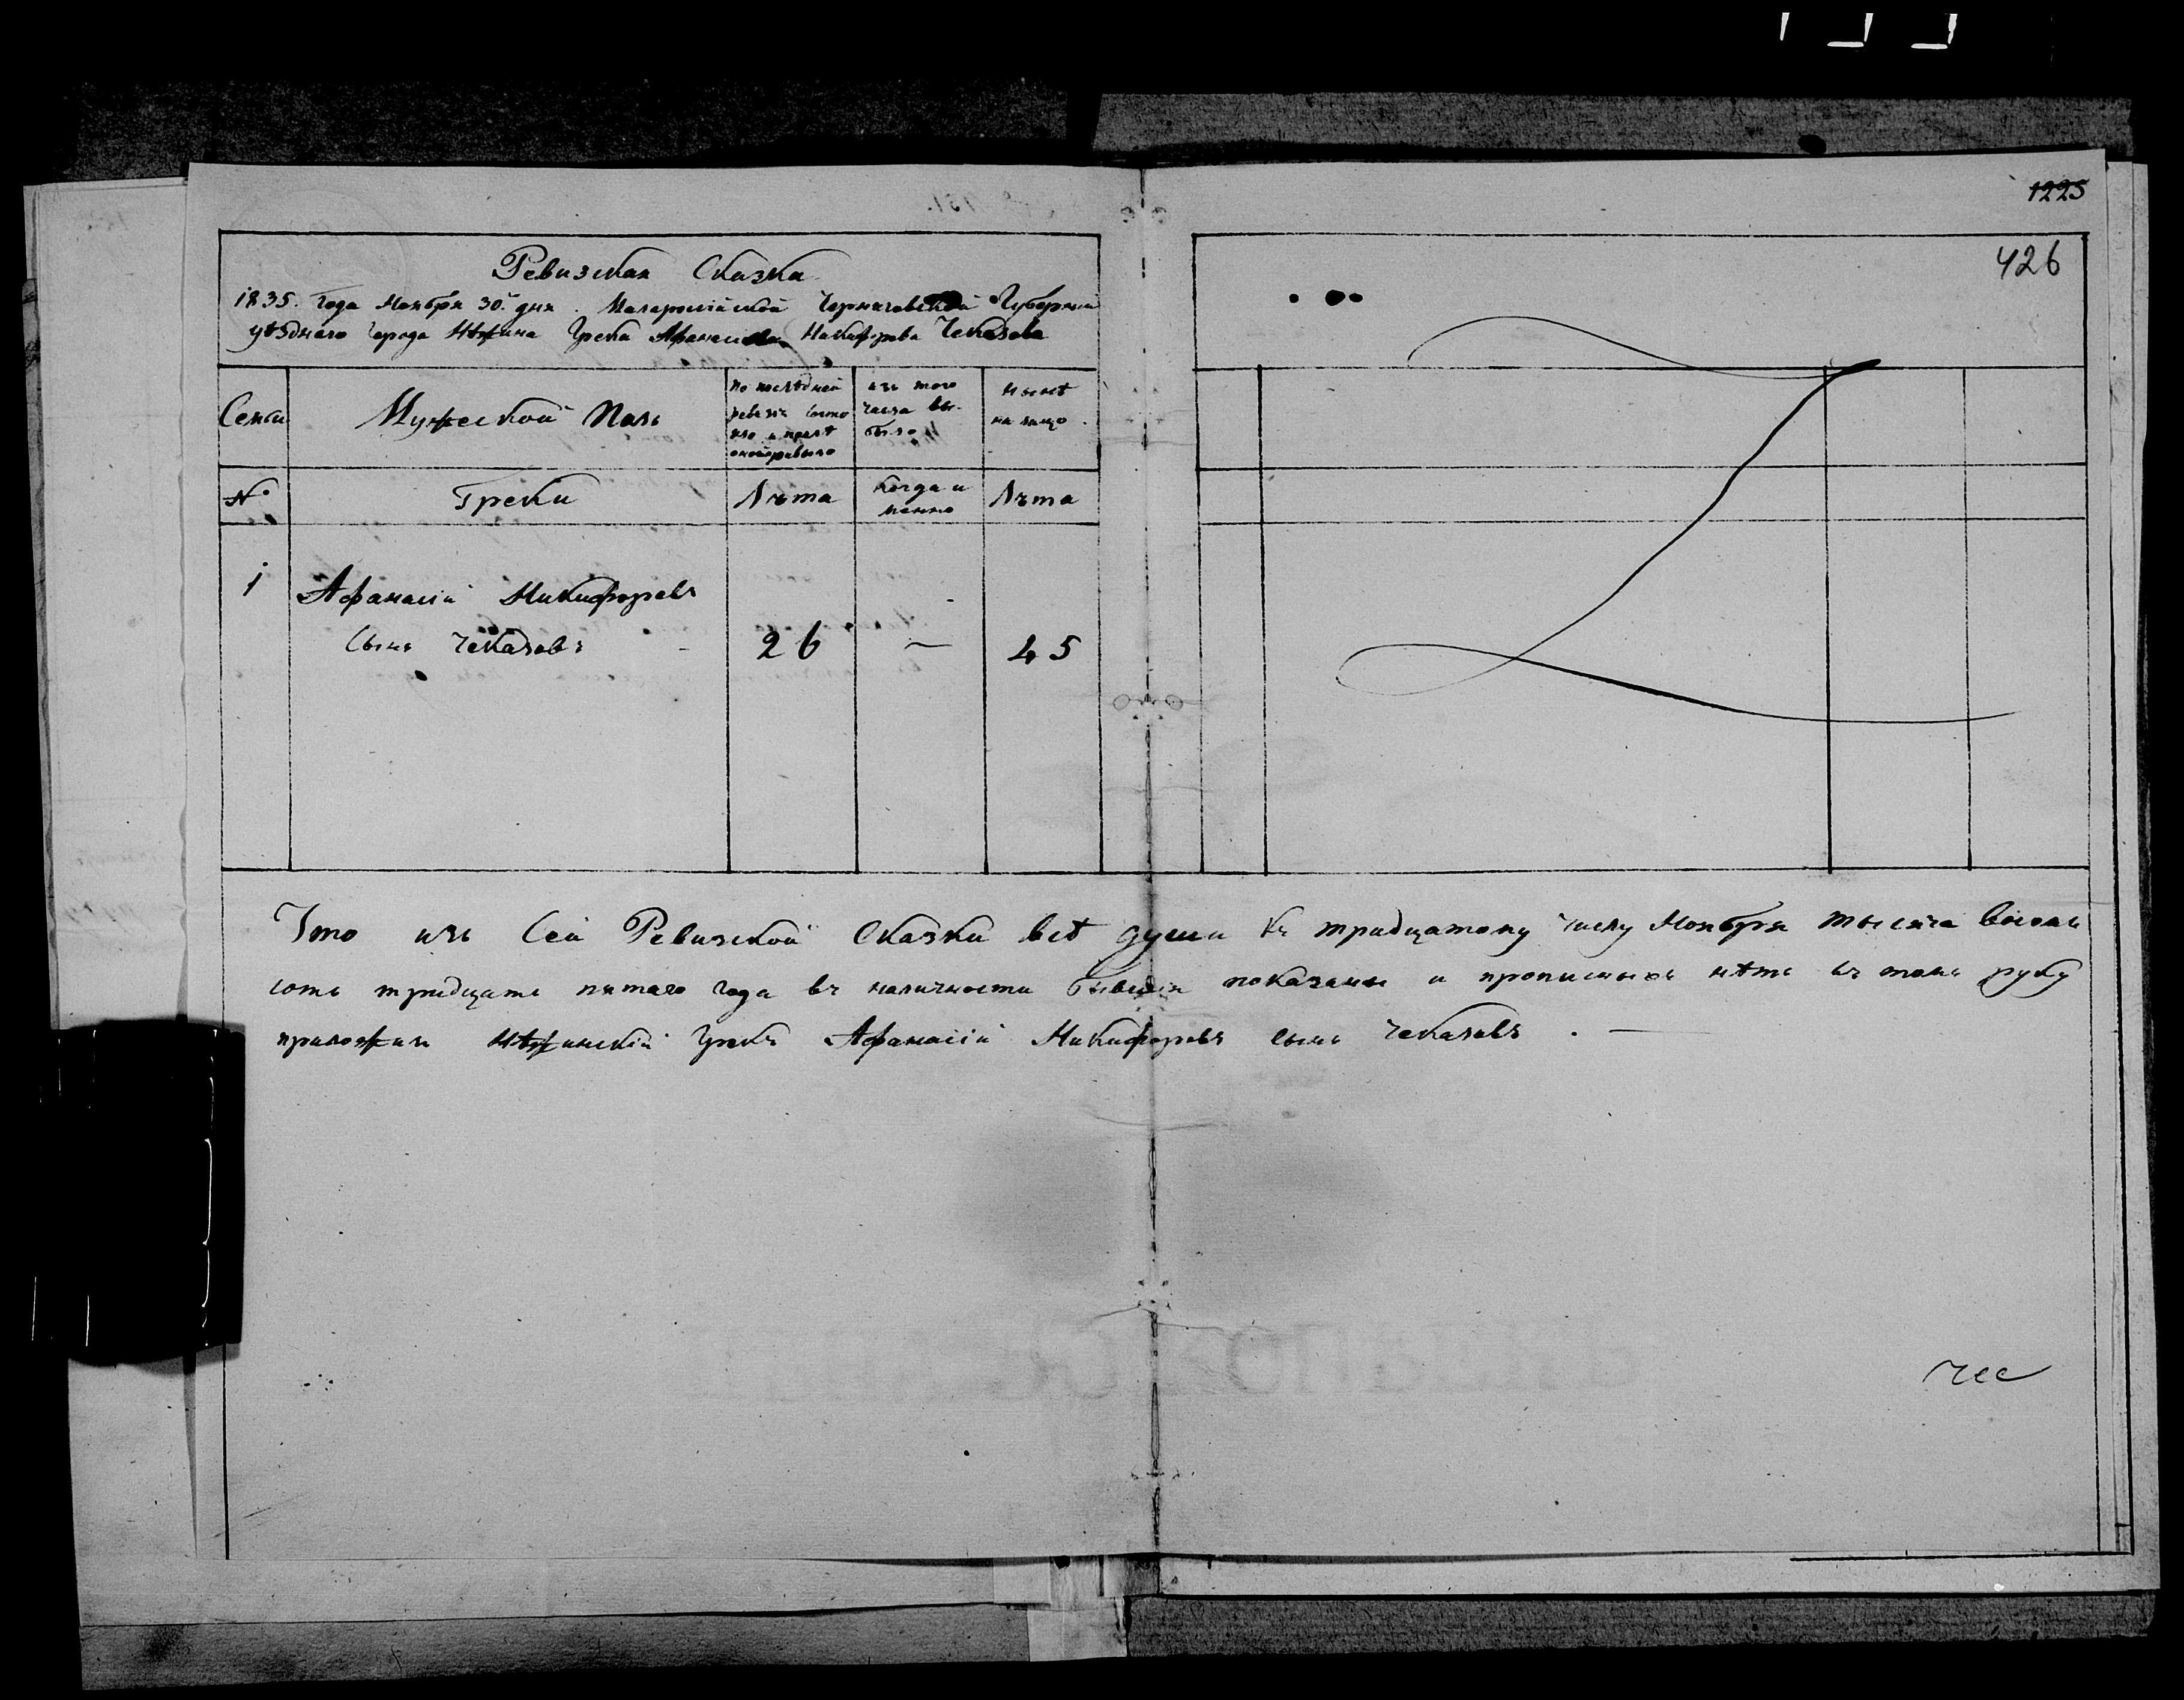 1225
426
Ревизская Сказка
1835. Года Ноября 30. дня. Малоросійской Черниговской Губерніи
уѣзднаго города Нѣжина Грека Афанасія Никифорова Чеказова
Семьи
Мужеской Полъ
По послѣдней
ревизіи состо
яло и послѣ
оной прибыло
изъ того
числа вы-
было
нынѣ
на лицо.
№
Греки
Лѣта
Когда и
менно
Лѣта
1
Афанасій Никифоровъ
сынъ Чеказовъ - 26 — 45
Что изъ Сей Ревизской Сказки всѣ души къ тридцатому числу Ноября тысяча восемь
сотъ тридцать пятаго года въ наличности бывшія показаны и прописныхъ нѣтъ въ томъ руку
приложилъ Нѣжинскій Грекъ Афанасій Никифоровъ сынъ Чеказовъ. —